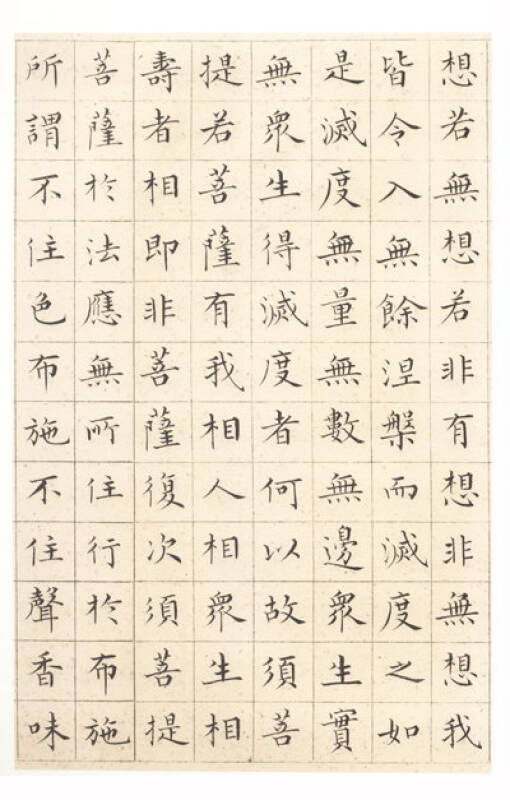 想若無想若非有想非無想我
皆令入無餘涅槃而滅度之如
是滅度無量無數無邊衆生實
無衆生得滅度者何以故須菩
提若菩薩有我相人相衆生相
壽者相即非菩薩復次須菩提
菩薩於法應無所住行於布施
所謂不住色布施不住聲香味